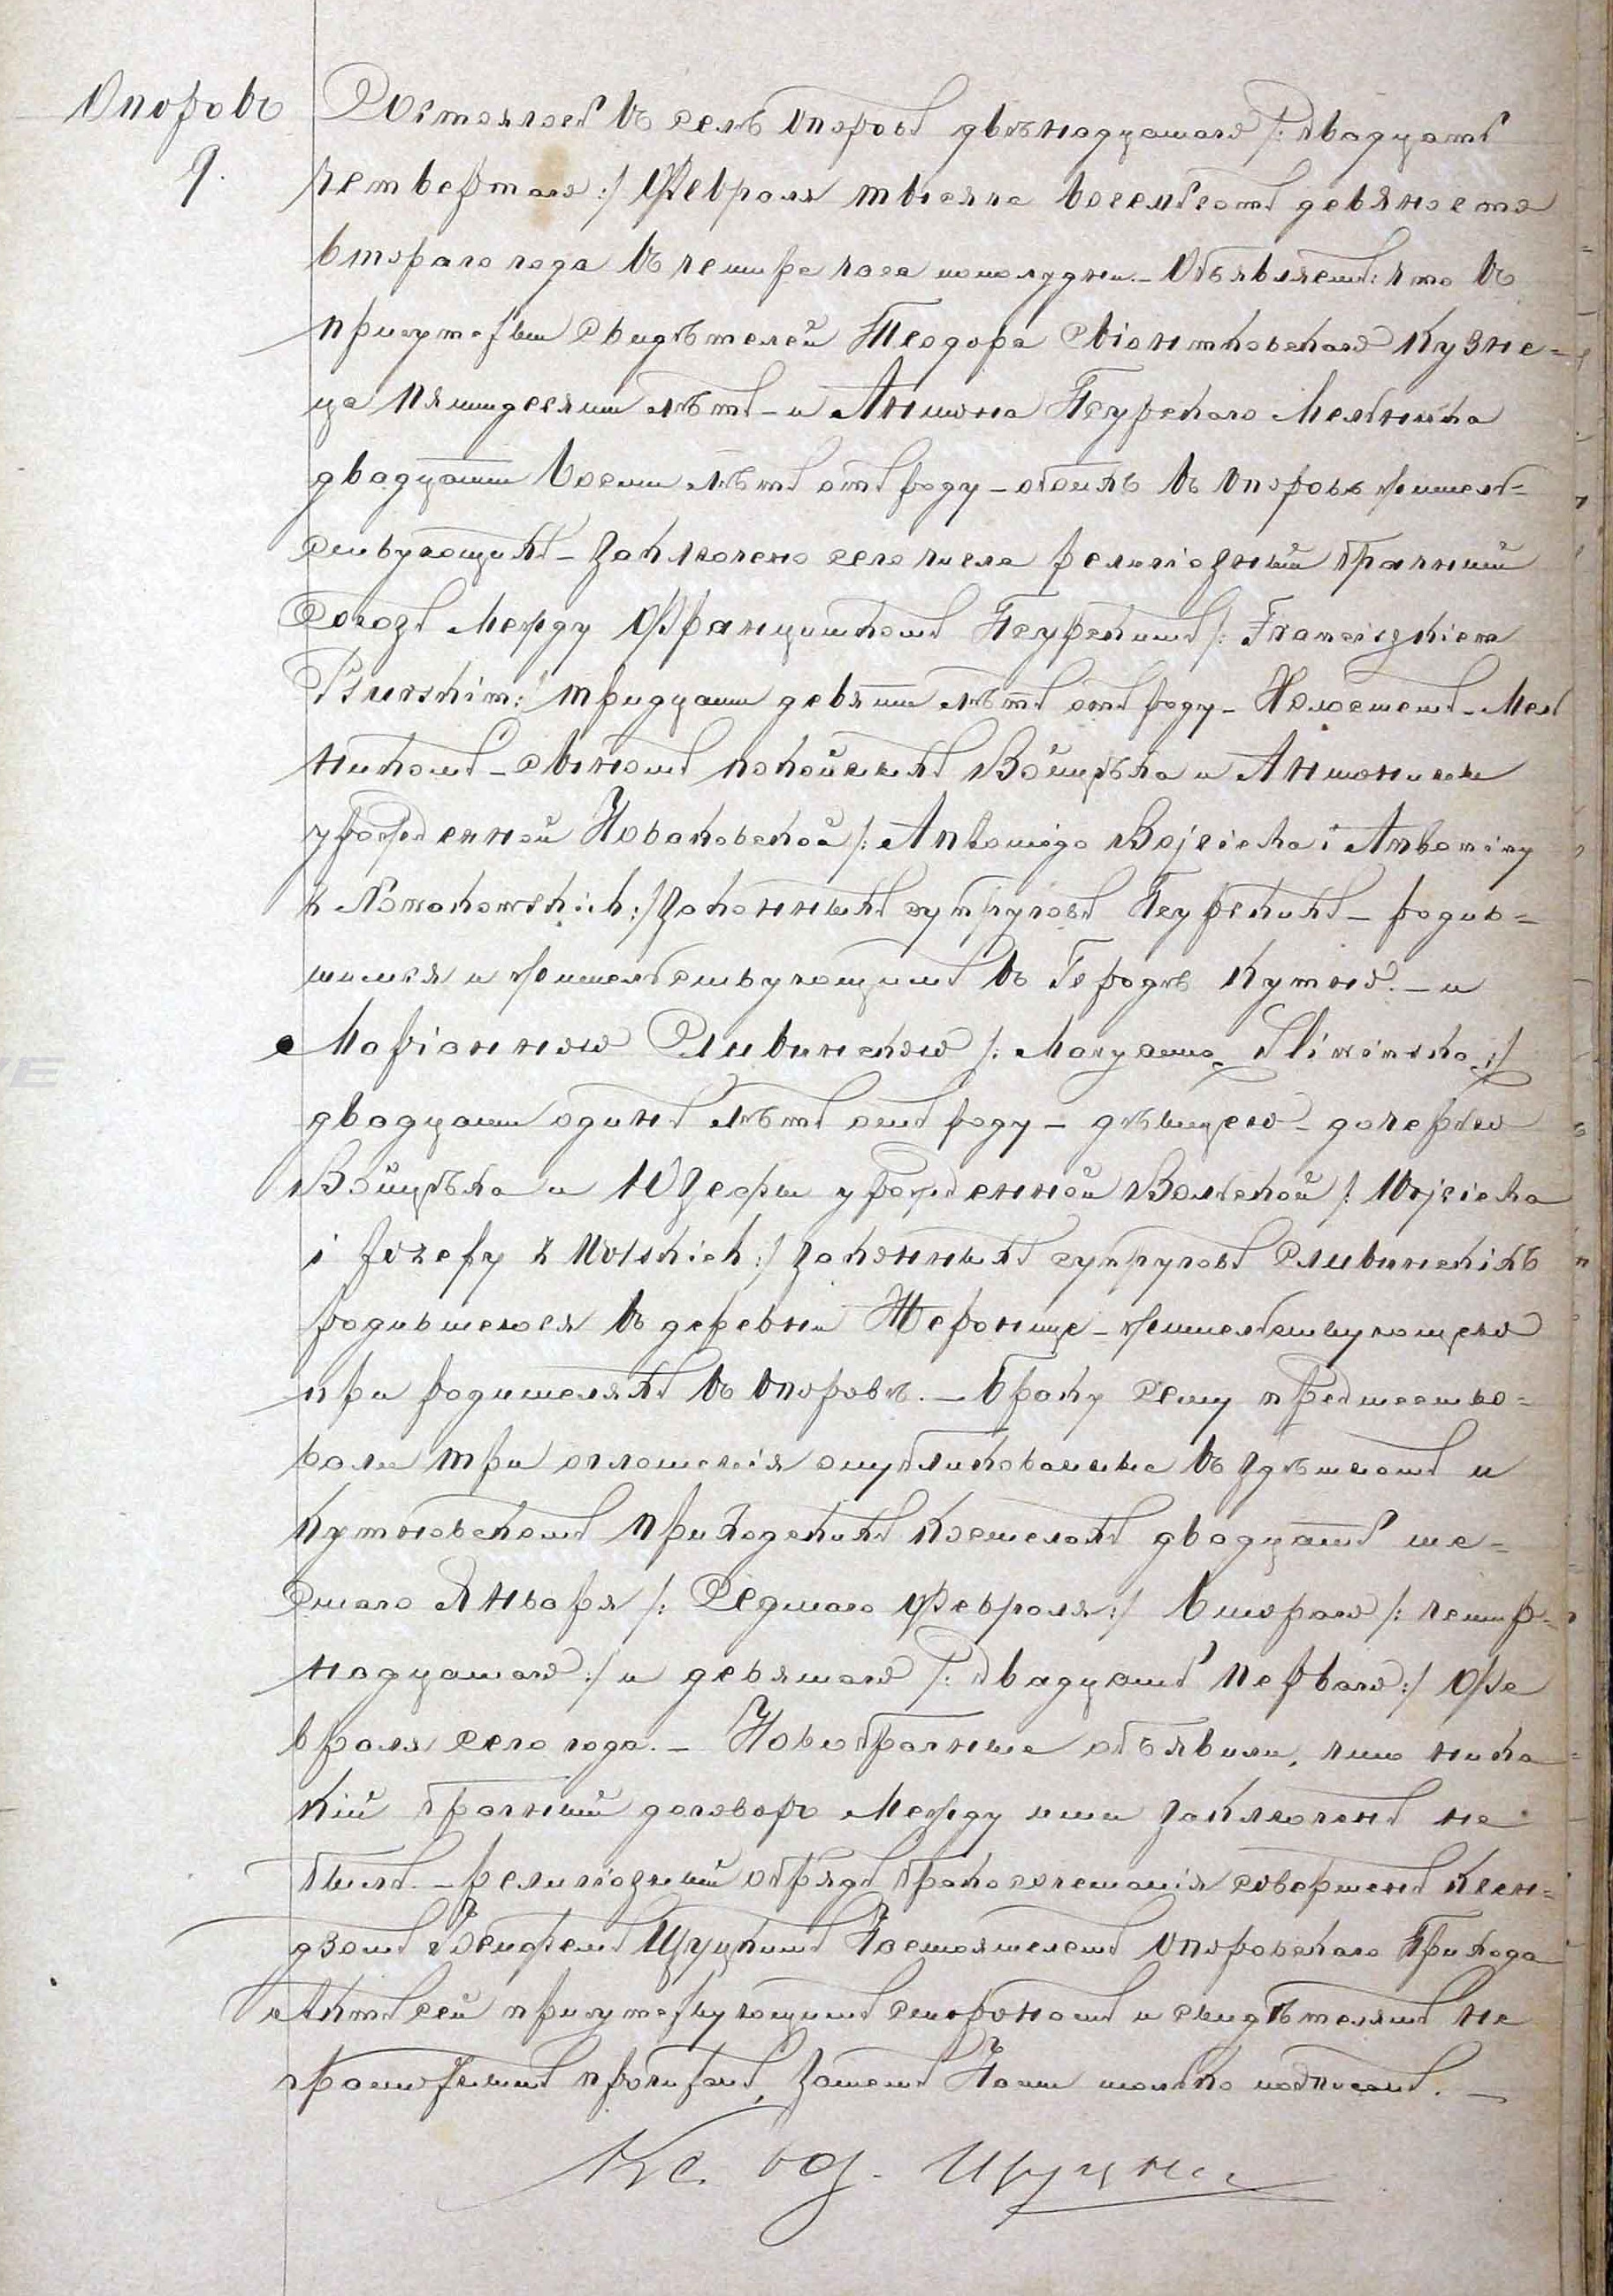 Опоровъ
9.
Состоялось въ селѣ Опоровѣ двѣнадцатаго /: двадцать
четвертаго :/ Февраля тысяча восемьсотъ девяносто
втораго года въ четыре часа пополудни. – Объявляемъ: что въ
присутствіи свидѣтелей Теодора Свіонтковскаго кузне=
ца пятидесяти лѣтъ – и Антона Псурскаго Мельника
двадцати восьми лѣтъ отъ роду – обоихъ въ Опоровѣ жительст=
ствующихъ – заключенъ сего числа религіозный брачный
Союзъ между Францишкомъ Псурскимъ /: Franciszkiem
Psurskim :/ тридцати девяти лѣтъ отъ роду – Холостымъ – Мель
никомъ – сыномъ покойныхъ Войцѣха и Антонины
урожденной Новаковской /: Wojciecha i Antoniny
z Nowakowskich :/ законныхъ супруговъ Псурскихъ – родив=
шимся и жительствующимъ въ Городѣ Кутнѣ. – и
Маріанною Сливинскою /: Maryanną Sliwinską :/
двадцати одинъ лѣтъ отъ роду – дѣвицею – дочерью
Войцѣха и Юзефы урожденной Вольской /: Wojciecha
i Józefy z Wolskich :/ законныхъ супруговъ Сливинскихъ
родившеюся въ деревни – жительствующею
при родителяхъ въ Опоровѣ. – Браку сему предшество=
вали три оглашенія опубликованные въ здѣшнемъ и
Кутновскомъ приходскихъ костелахъ двадцать ше=
стаго Января /: Седмаго Февраля :/ Втораго /: четыр=
надцатаго :/ и девятаго /: двадцать перваго :/ Фе
враля сего года. – Новобрачные объявили, что ника
кій брачный договоръ между ими заключенъ не
былъ. – религіозный обрядъ бракосочетанія совершенъ Ксен=
дзомъ Щуцкимъ Настоятелемъ Опоровскаго Прихода
Актъ сей присутствующимъ сторонамъ и свидѣтелямъ не
грамотнымъ прочитанъ, затемъ Нами только подписанъ. –
Кс. Щуцкі